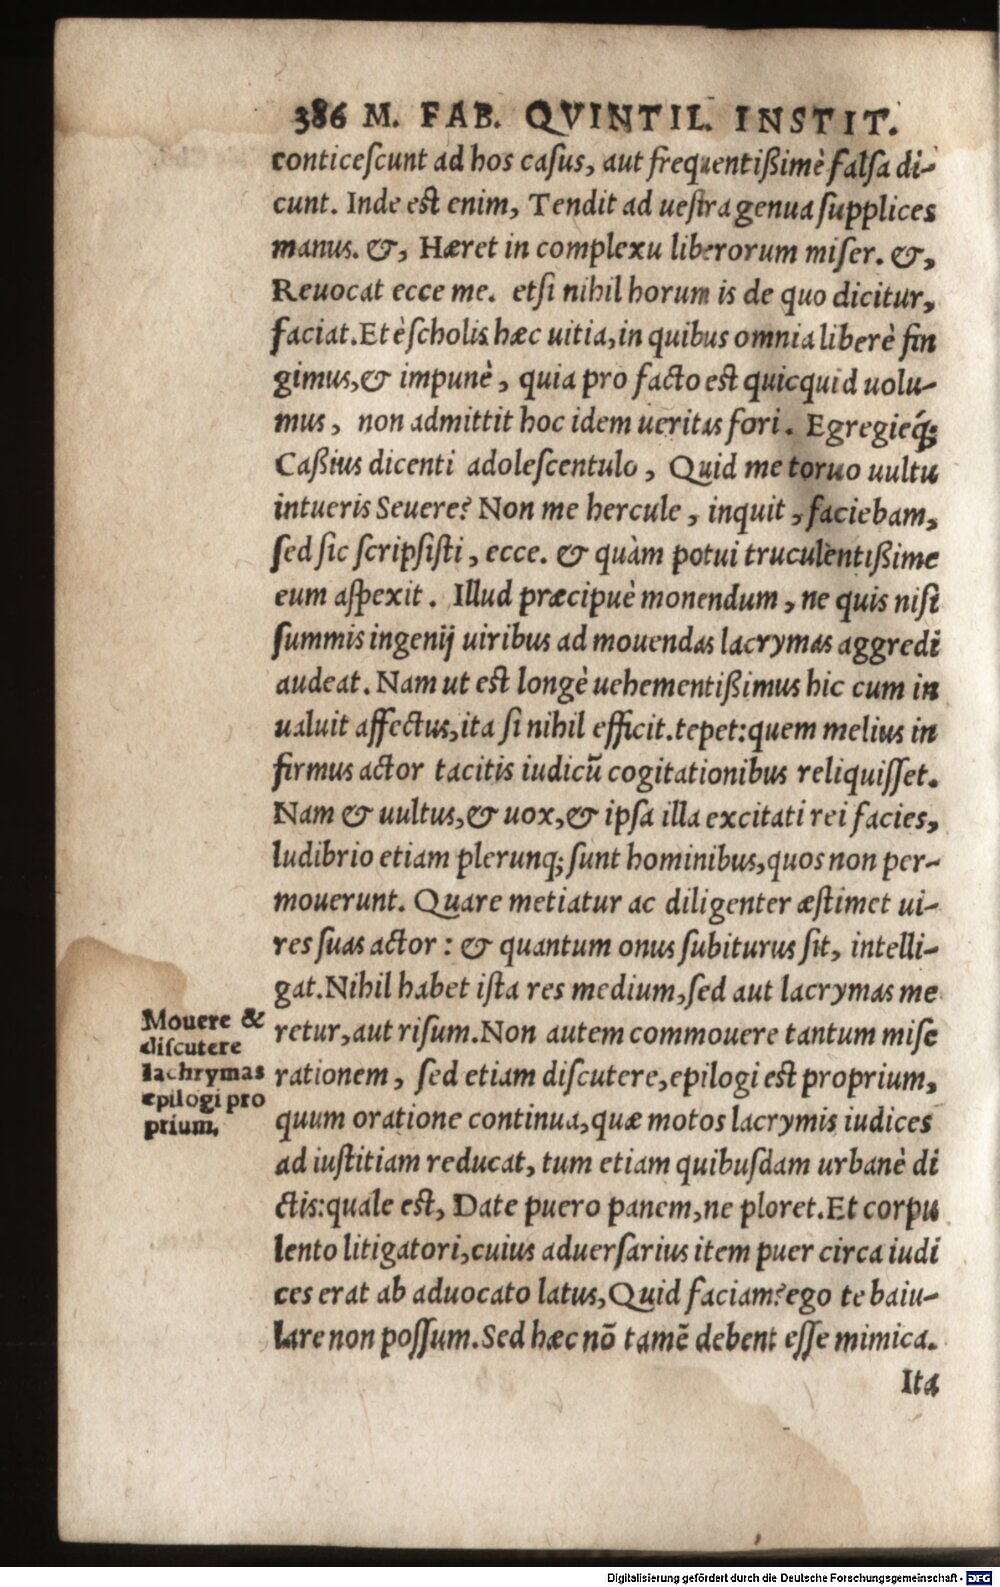 386 M. FAB. QVINTIL. INSTIT.
conticeſcunt ad hos caſus, aut frequentißimè falſa di-
cunt. Inde est enim, Tendit ad ueſtra genua ſupplices
manus. &, Hæret in complexu liberorum miſer. &,
Reuocat ecce me. etſi nihil horum is de quo dicitur,
faciat. Et è ſcholis hæc uitia, in quibus omnia liberè fin
gimus, & impunè, quia pro facto est quicquid uolu-
mus, non admittit hoc idem ueritas fori. Egregieq́;
Caßius dicenti adoleſcentulo, Quid me toruo uultu
intueris Seuere? Non me hercule, inquit, faciebam,
ſed ſic ſcripſiſti, ecce. & quàm potui truculentißime
eum aſpexit. Illud præcipuè monendum, ne quis niſi
ſummis ingenij uiribus ad mouendas lacrymas aggredi
audeat. Nam ut est longè uehementißimus hic cum in
ualuit affectus, ita ſi nihil efficit. tepet: quem melius in
firmus actor tacitis iudicũ cogitationibus reliquiſſet.
Nam & uultus, & uox, & ipſa illa excitati rei facies,
ludibrio etiam plerunq; ſunt hominibus, quos non per-
mouerunt. Quare metiatur ac diligenter æſtimet ui-
res ſuas actor: & quantum onus ſubiturus ſit, intelli-
gat. Nihil habet iſta res medium, ſed aut lacrymas me
retur, aut riſum. Non autem commouere tantum miſe
rationem, ſed etiam diſcutere, epilogi est proprium,
quum oratione continua, quæ motos lacrymis iudices
ad iuſtitiam reducat, tum etiam quibuſdam urbanè di
ctis: quale est, Date puero panem, ne ploret. Et corpu
lento litigatori, cuius aduerſarius item puer circa iudi
ces erat ab aduocato latus, Quid faciam? ego te baiu-
lare non poſſum. Sed hæc nõ tamẽ debent eſſe mimica.
Ita
Mouere &
diſcutere
lachrymas
epilogi pro
prium.
Digitalisierung gefördert durch die Deutsche Forschungsgemeinschaft - DFG